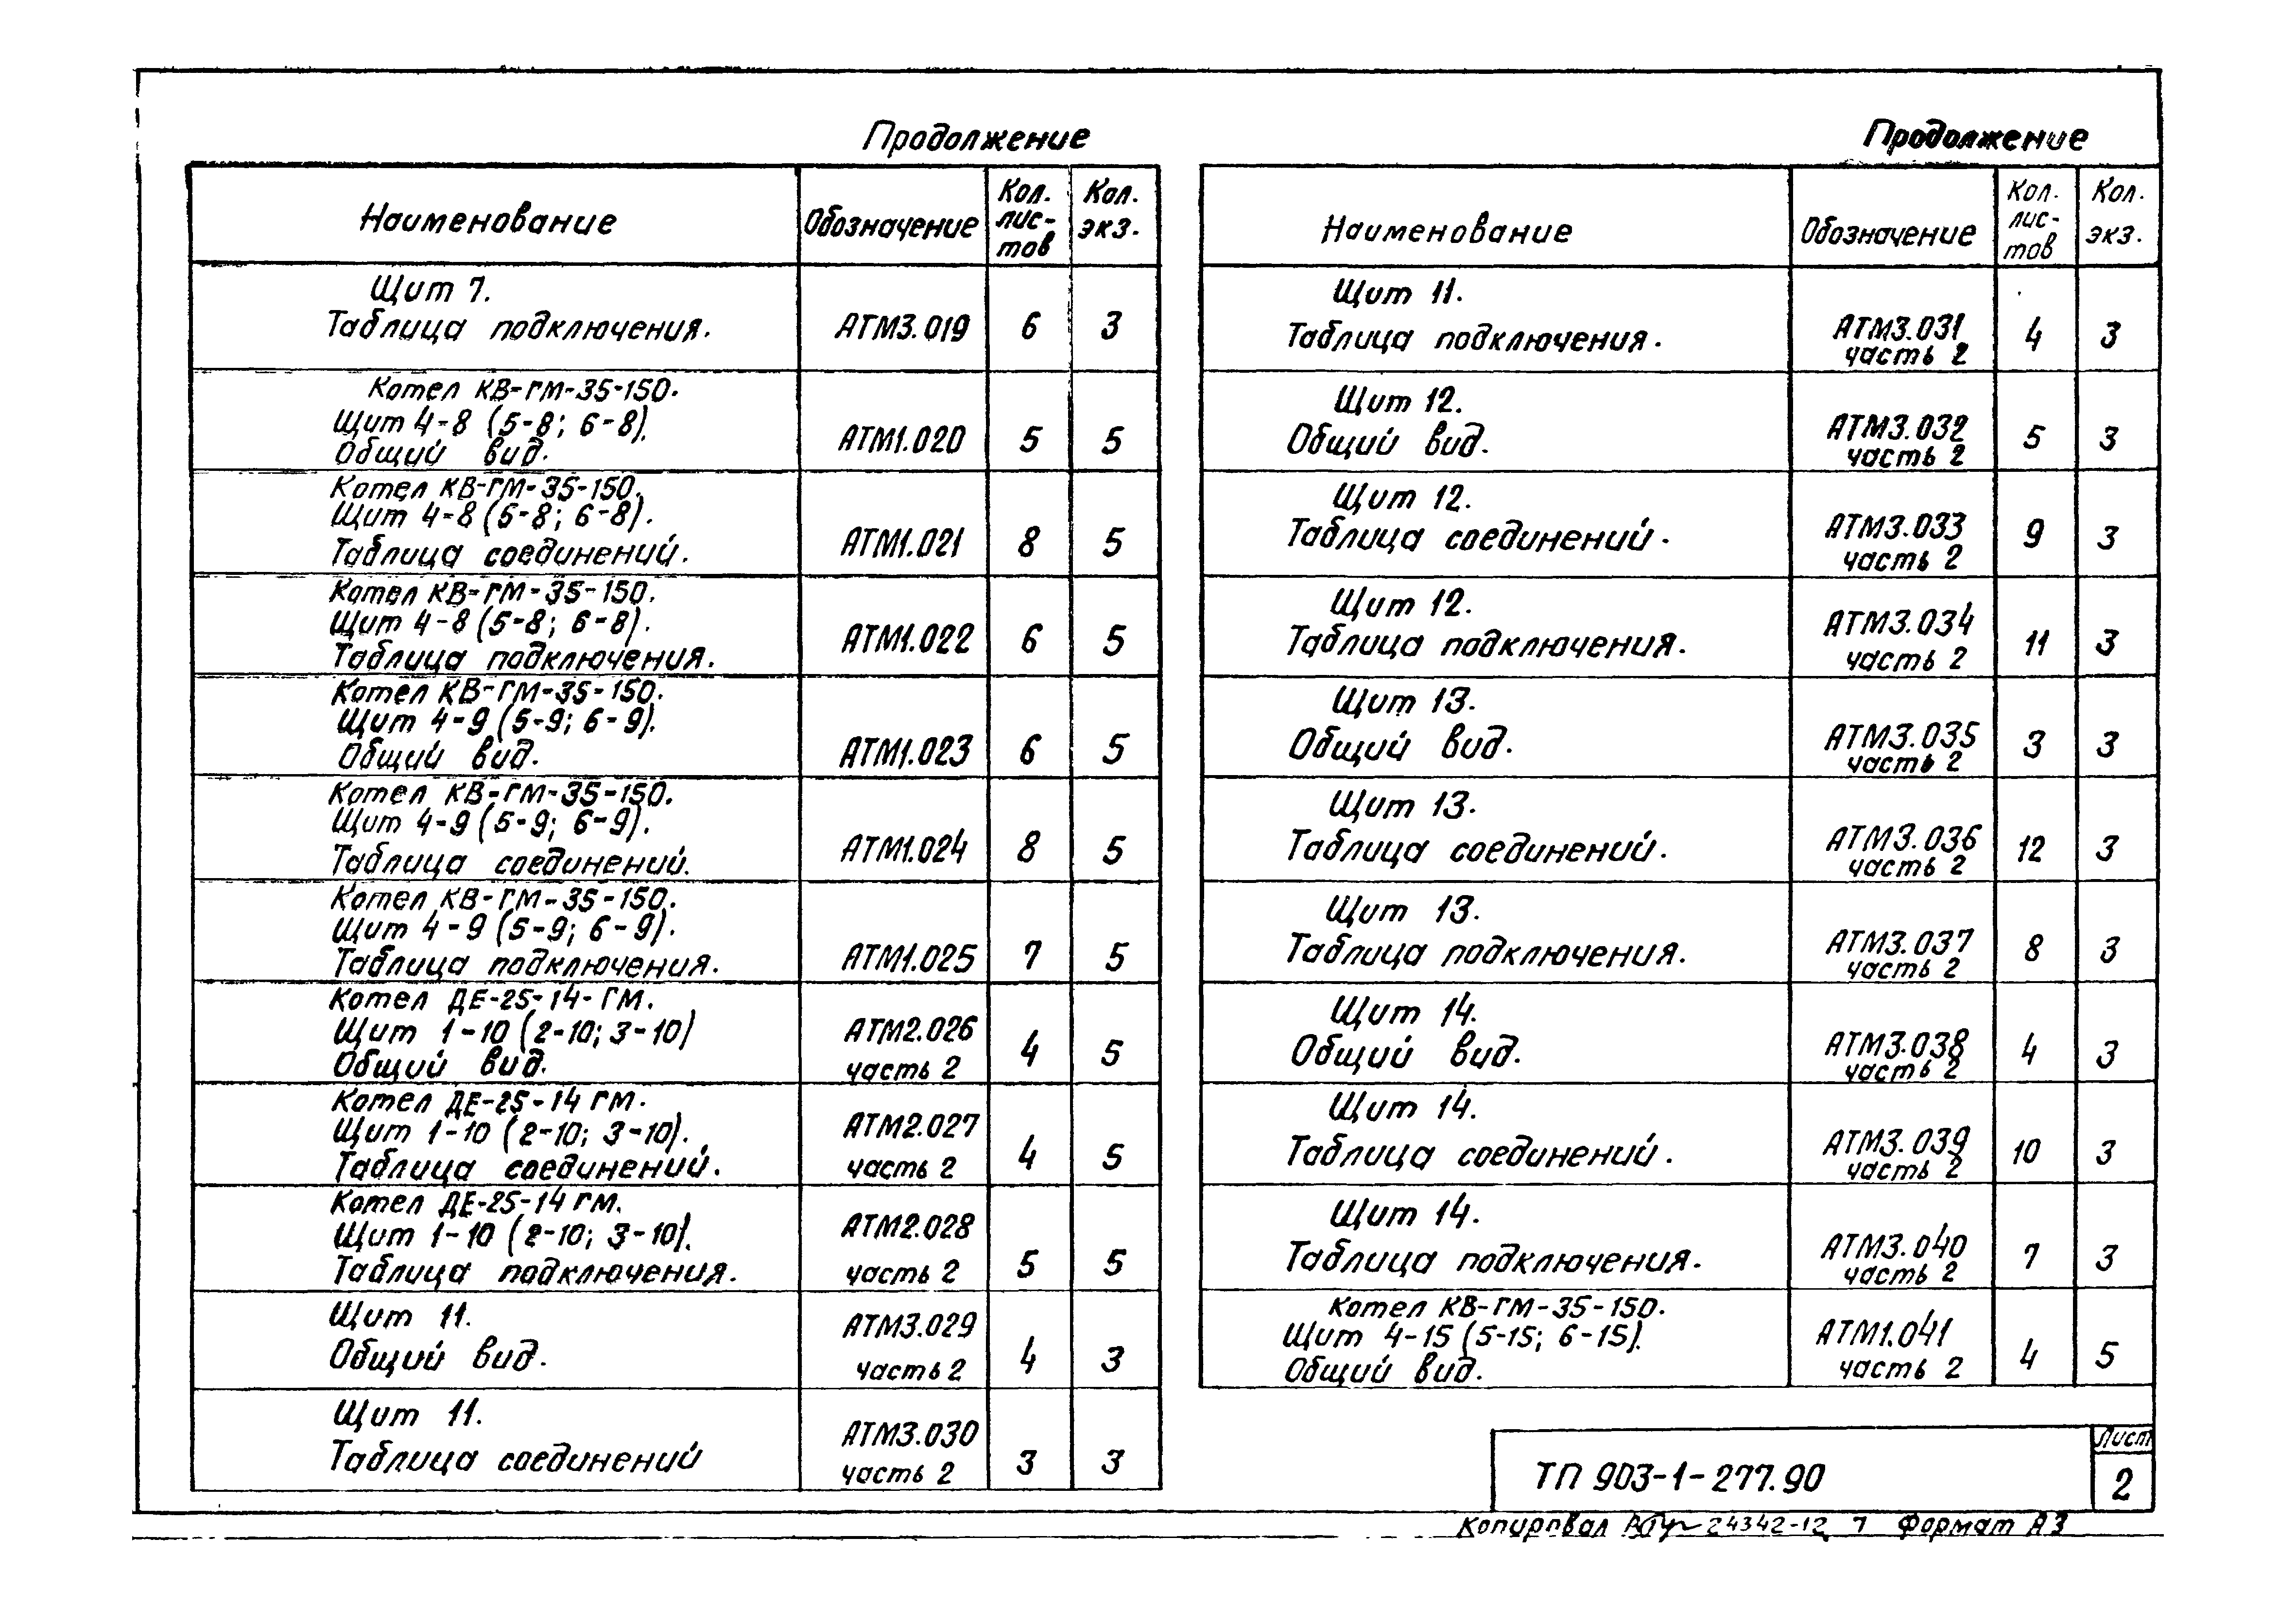 Продолжение
Наименование
Обозначение
Кол. лис-тов
Кол. экз.
Щит 7.
Таблица подключения.
АТМ3.019
6
3
Котел КВ-ГМ-35-150.
Щит 4-8 (5-8; 6-8).
Общий вид.
АТМ1.020
5
5
Котел КВ-ГМ-35-150.
Щит 4-8 (5-8; 6-8).
Таблица соединений.
АТМ1.021
8
5
Котел КВ-ГМ-35-150.
Щит 4-8 (5-8; 6-8).
Таблица подключения.
АТМ1.022
6
5
Котел КВ-ГМ-35-150.
Щит 4-9 (5-9; 6-9).
Общий вид.
АТМ1.023
6
5
Котел КВ-ГМ-35-150.
Щит 4-9 (5-9; 6-9).
Таблица соединений.
АТМ1.024
8
5
Котел КВ-ГМ-35-150.
Щит 4-9 (5-9; 6-9).
Таблица подключения.
АТМ1.025
7
5
Котел ДЕ-25-14-ГМ.
Щит 1-10 (2-10; 3-10)
Общий вид.
АТМ2.026
часть 2
4
5
Котел ДЕ-25-14 ГМ.
Щит 1-10 (2-10; 3-10).
Таблица соединений.
АТМ2.027
часть 2
4
5
Котел ДЕ-25-14 ГМ.
Щит 1-10 (2-10; 3-10).
Таблица подключения.
АТМ2.028
часть 2
5
5
Щит 11.
Общий вид.
АТМ3.029
часть 2
4
3
Щит 11.
Таблица соединений
АТМ3.030
часть 2
3
3
Продолжение
Наименование
Обозначение
Кол. лис-тов
Кол. экз.
Щит 11.
Таблица подключения.
АТМ3.031
часть 2
4
3
Щит 12.
Общий вид.
АТМ3.032
часть 2
5
3
Щит 12.
Таблица соединений.
АТМ3.033
часть 2
9
3
Щит 12.
Таблица подключения.
АТМ3.034
часть 2
11
3
Щит 13.
Общий вид.
АТМ3.035
часть 2
3
3
Щит 13.
Таблица соединений.
АТМ3.036
часть 2
12
3
Щит 13.
Таблица подключения.
АТМ3.037
часть 2
8
3
Щит 14.
Общий вид.
АТМ3.038
часть 2
4
3
Щит 14.
Таблица соединений.
АТМ3.039
часть 2
10
3
Щит 14.
Таблица подключения.
АТМ3.040
часть 2
7
3
Котел КВ-ГМ-35-150.
Щит 4-15 (5-15; 6-15).
Общий вид.
АТМ1.041
часть 2
4
5
ТП 903-1-277.90
Лист
2
Копировал 24342-12 7 Формат А3